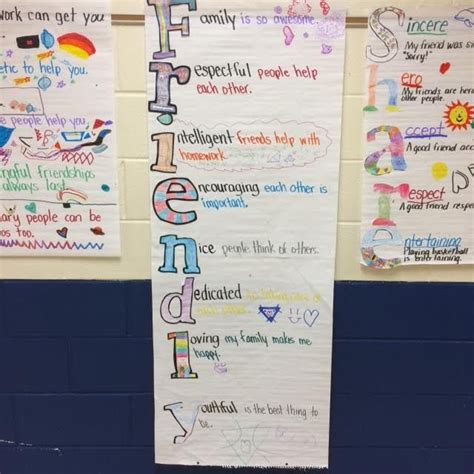 work can get you
etic to help you.
e people to help
ngful friendships
always last.
nary people can be
os too.
Family is so awesome.
Respectful people help
each other.
Intelligent friends help with
homework.
Encouraging each other is
important.
Nice people think of others.
Dedicated
Loving my family makes me
happy.
Youthful is the best thing to
be.
Sincere
My friend was s
"Sorry!"
hero
My friends are her
other people.
Accept
A good friend ac
respect
A good friend respe
entertaining
Playing basketball
is entertaining.